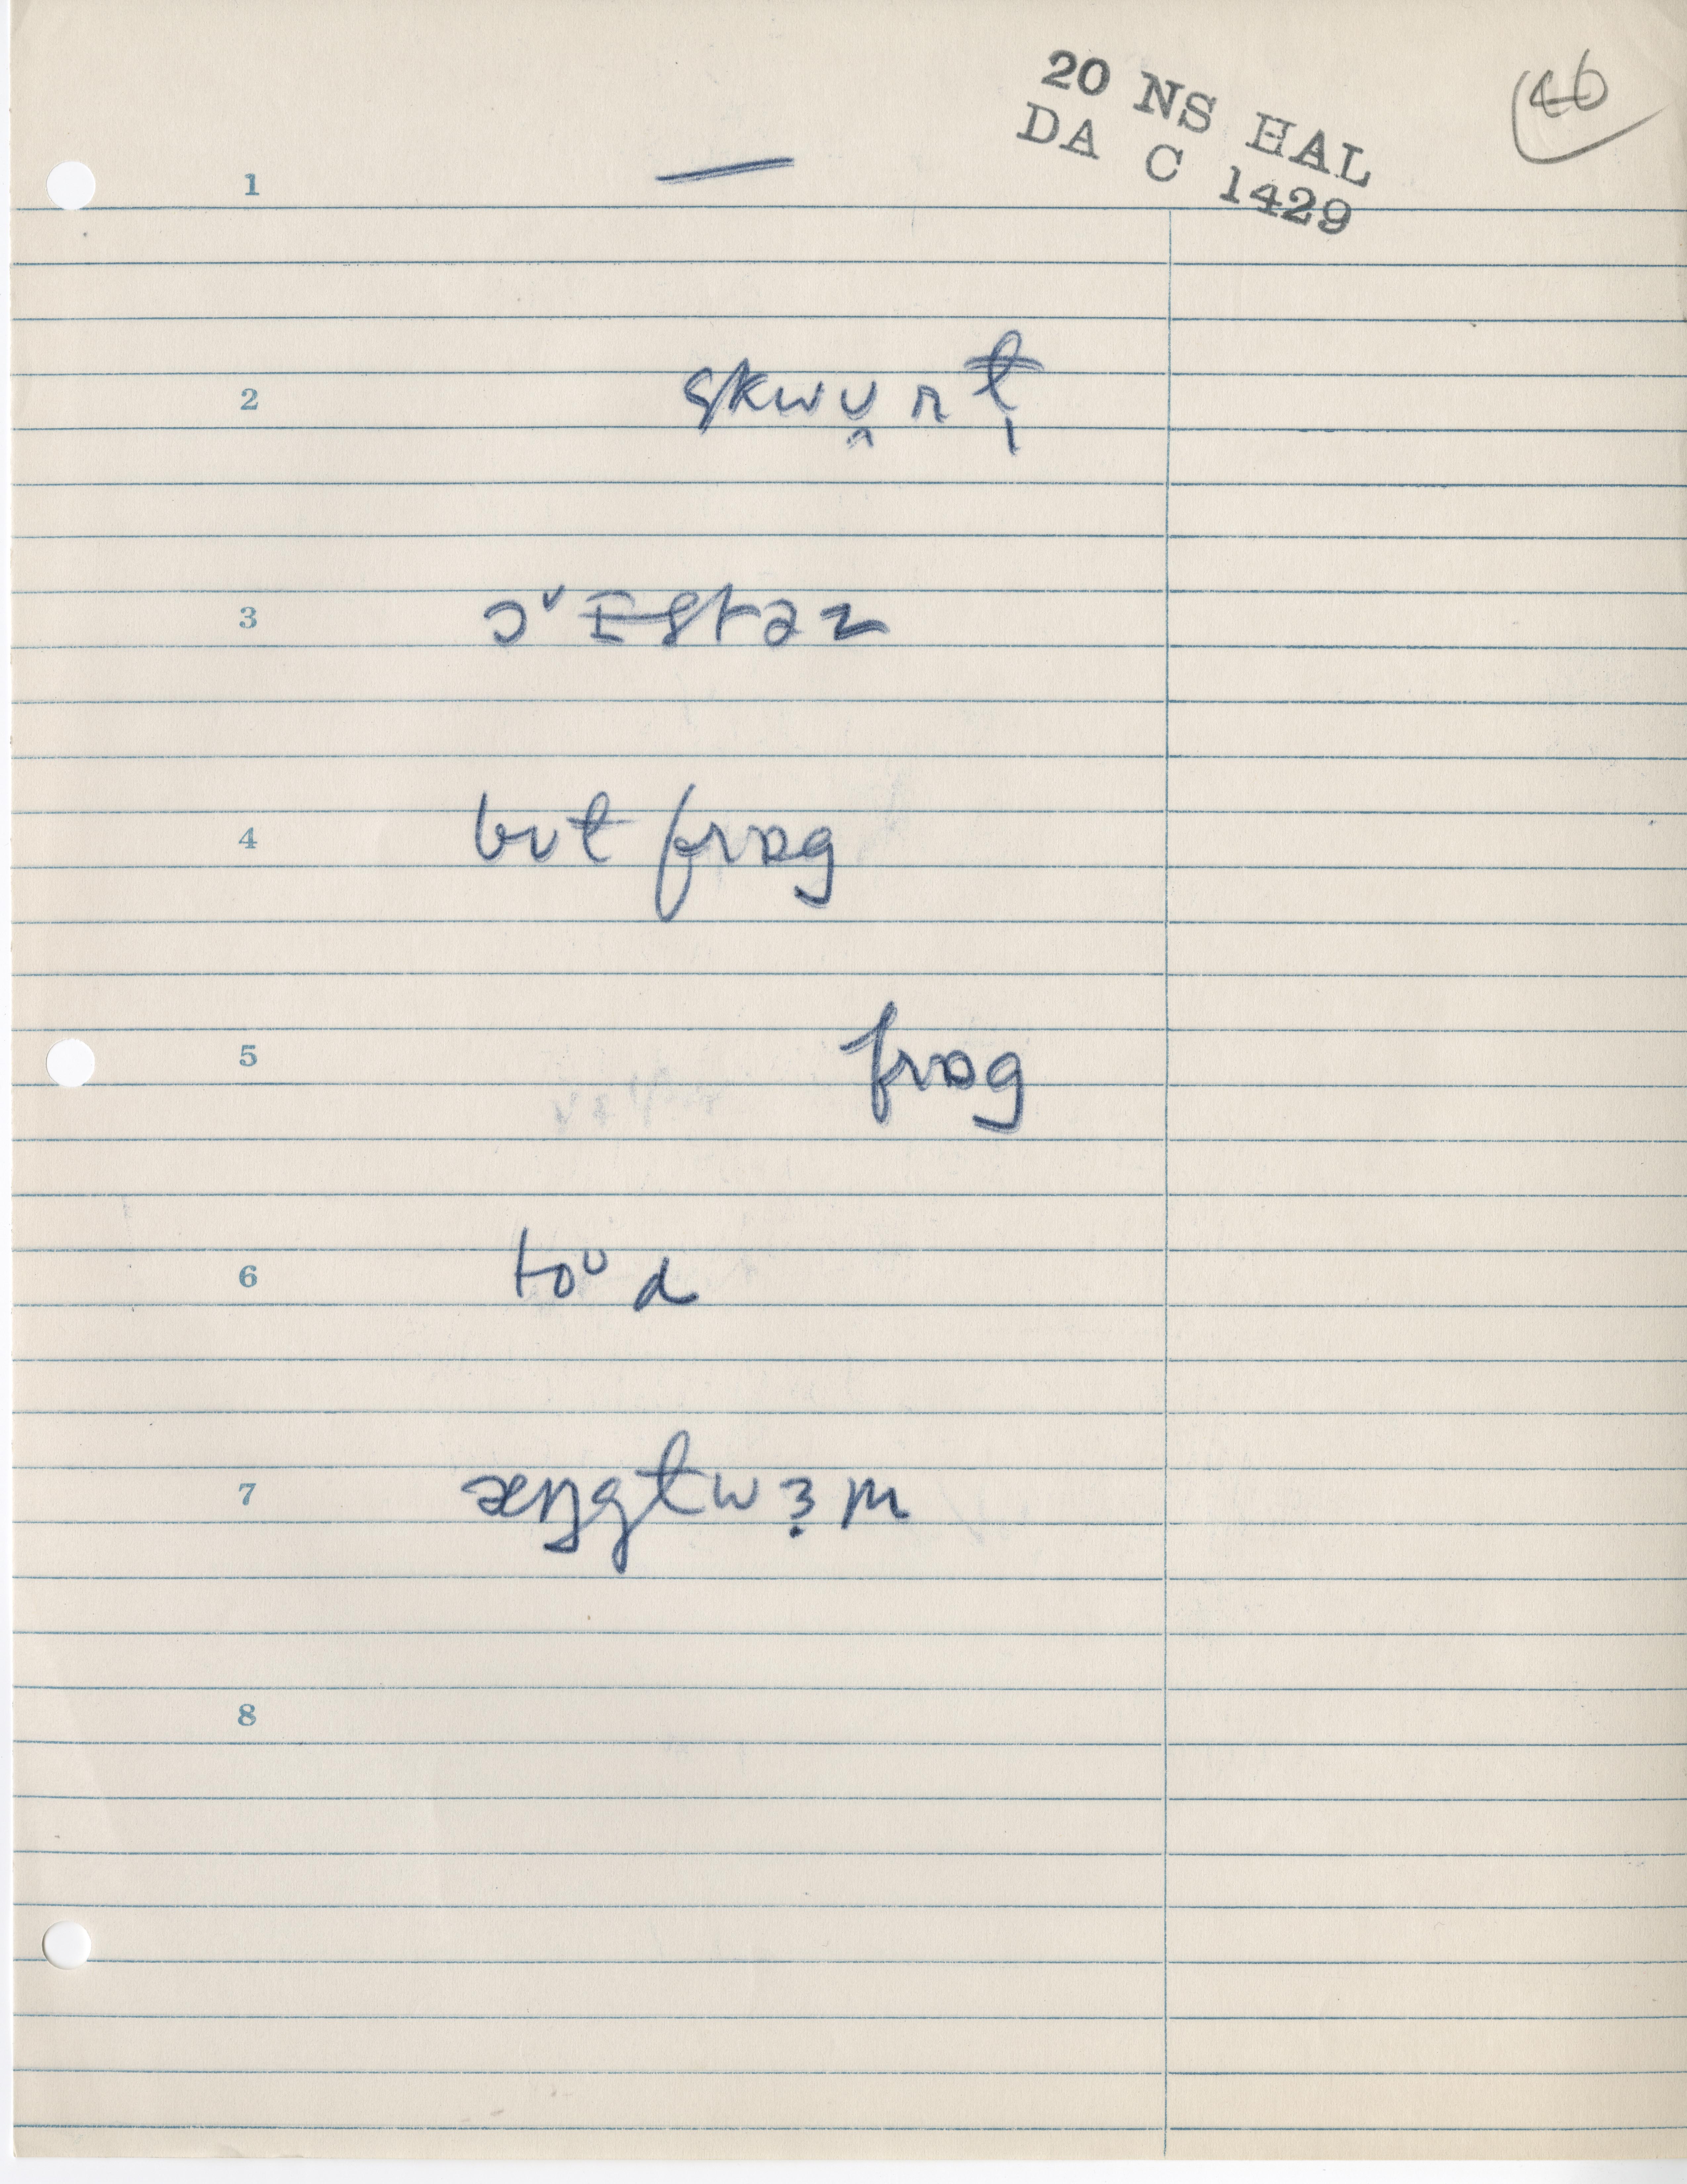 20 NS HAL
DA C 1429
46
1 —
2 skwʊ̭rɫ̩
3 ɔˇɪstəz
4 bʊɫ frɒg
5 frɒg
6 toᶷd
7 æŋgɫwɜ̣m
8